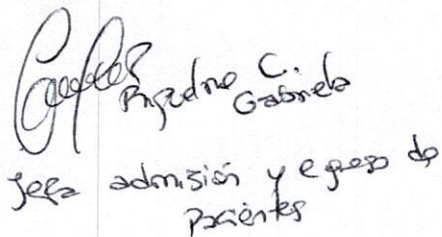 C.
Gabriela
Jefa admisión y egreso de
Pacientes